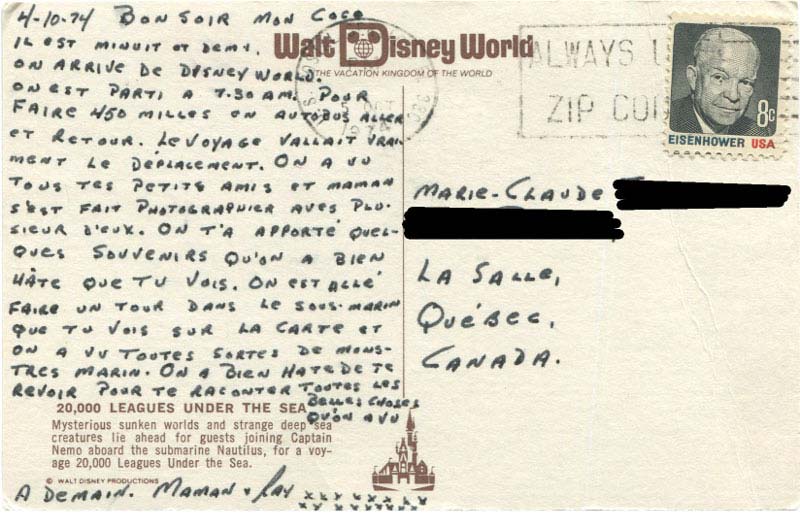 4-10-74 BONSOIR MON COCO
IL EST MINUIT ET DEMI.
ON ARRIVE DE DISNEY WORLD.
ON EST PARTI A 7.30 AM. POUR
FAIRE 450 MILLES EN AUTOBUS ALLER
ET RETOUR. LE VOYAGE VALLAIT VRAI-
MENT LE DÉPLACEMENT. ON A VU
TOUS TES PETITS AMIS ET MAMAN
S'EST FAIT PHOTOGRAPHIER AVES PLU-
SIEUR D'EUX. ON T'A APPORTÉ QUEL-
QUES SOUVENIRS QU'ON A BIEN
HÂTE QUE TU VOIS. ON EST ALLÉ
FAIRE UN TOUR DANS LE SOUS-MARIN
QUE TU VOIS SUR LA CARTE ET
ON A VU TOUTES SORTES DE MONS-
TRES MARIN. ON A BIEN HATE DE TE
REVOIR POUR TE RACONTER TOUTES LES
BELLES CHOSES
QU'ON A VU
20,000 LEAGUES UNDER THE SEA
Mysterious sunken worlds and strange deep sea
creatures lie ahead for guests joining Captain
Nemo aboard the submarine Nautilus, for a voy-
age 20,000 Leagues Under the Sea.
© WALT DISNEY PRODUCTIONS
A DEMAIN. MAMAN & RAY
xx xx xx xx xx
xx xx xx xx xx
Walt Disney World
THE VACATION KINGDOM OF THE WORLD
5 OCT
1974
ALWAYS U
ZIP CO
8c
EISENHOWER USA
MARIE-CLAUDE
LA SALLE,
QUÉBEC,
CANADA.